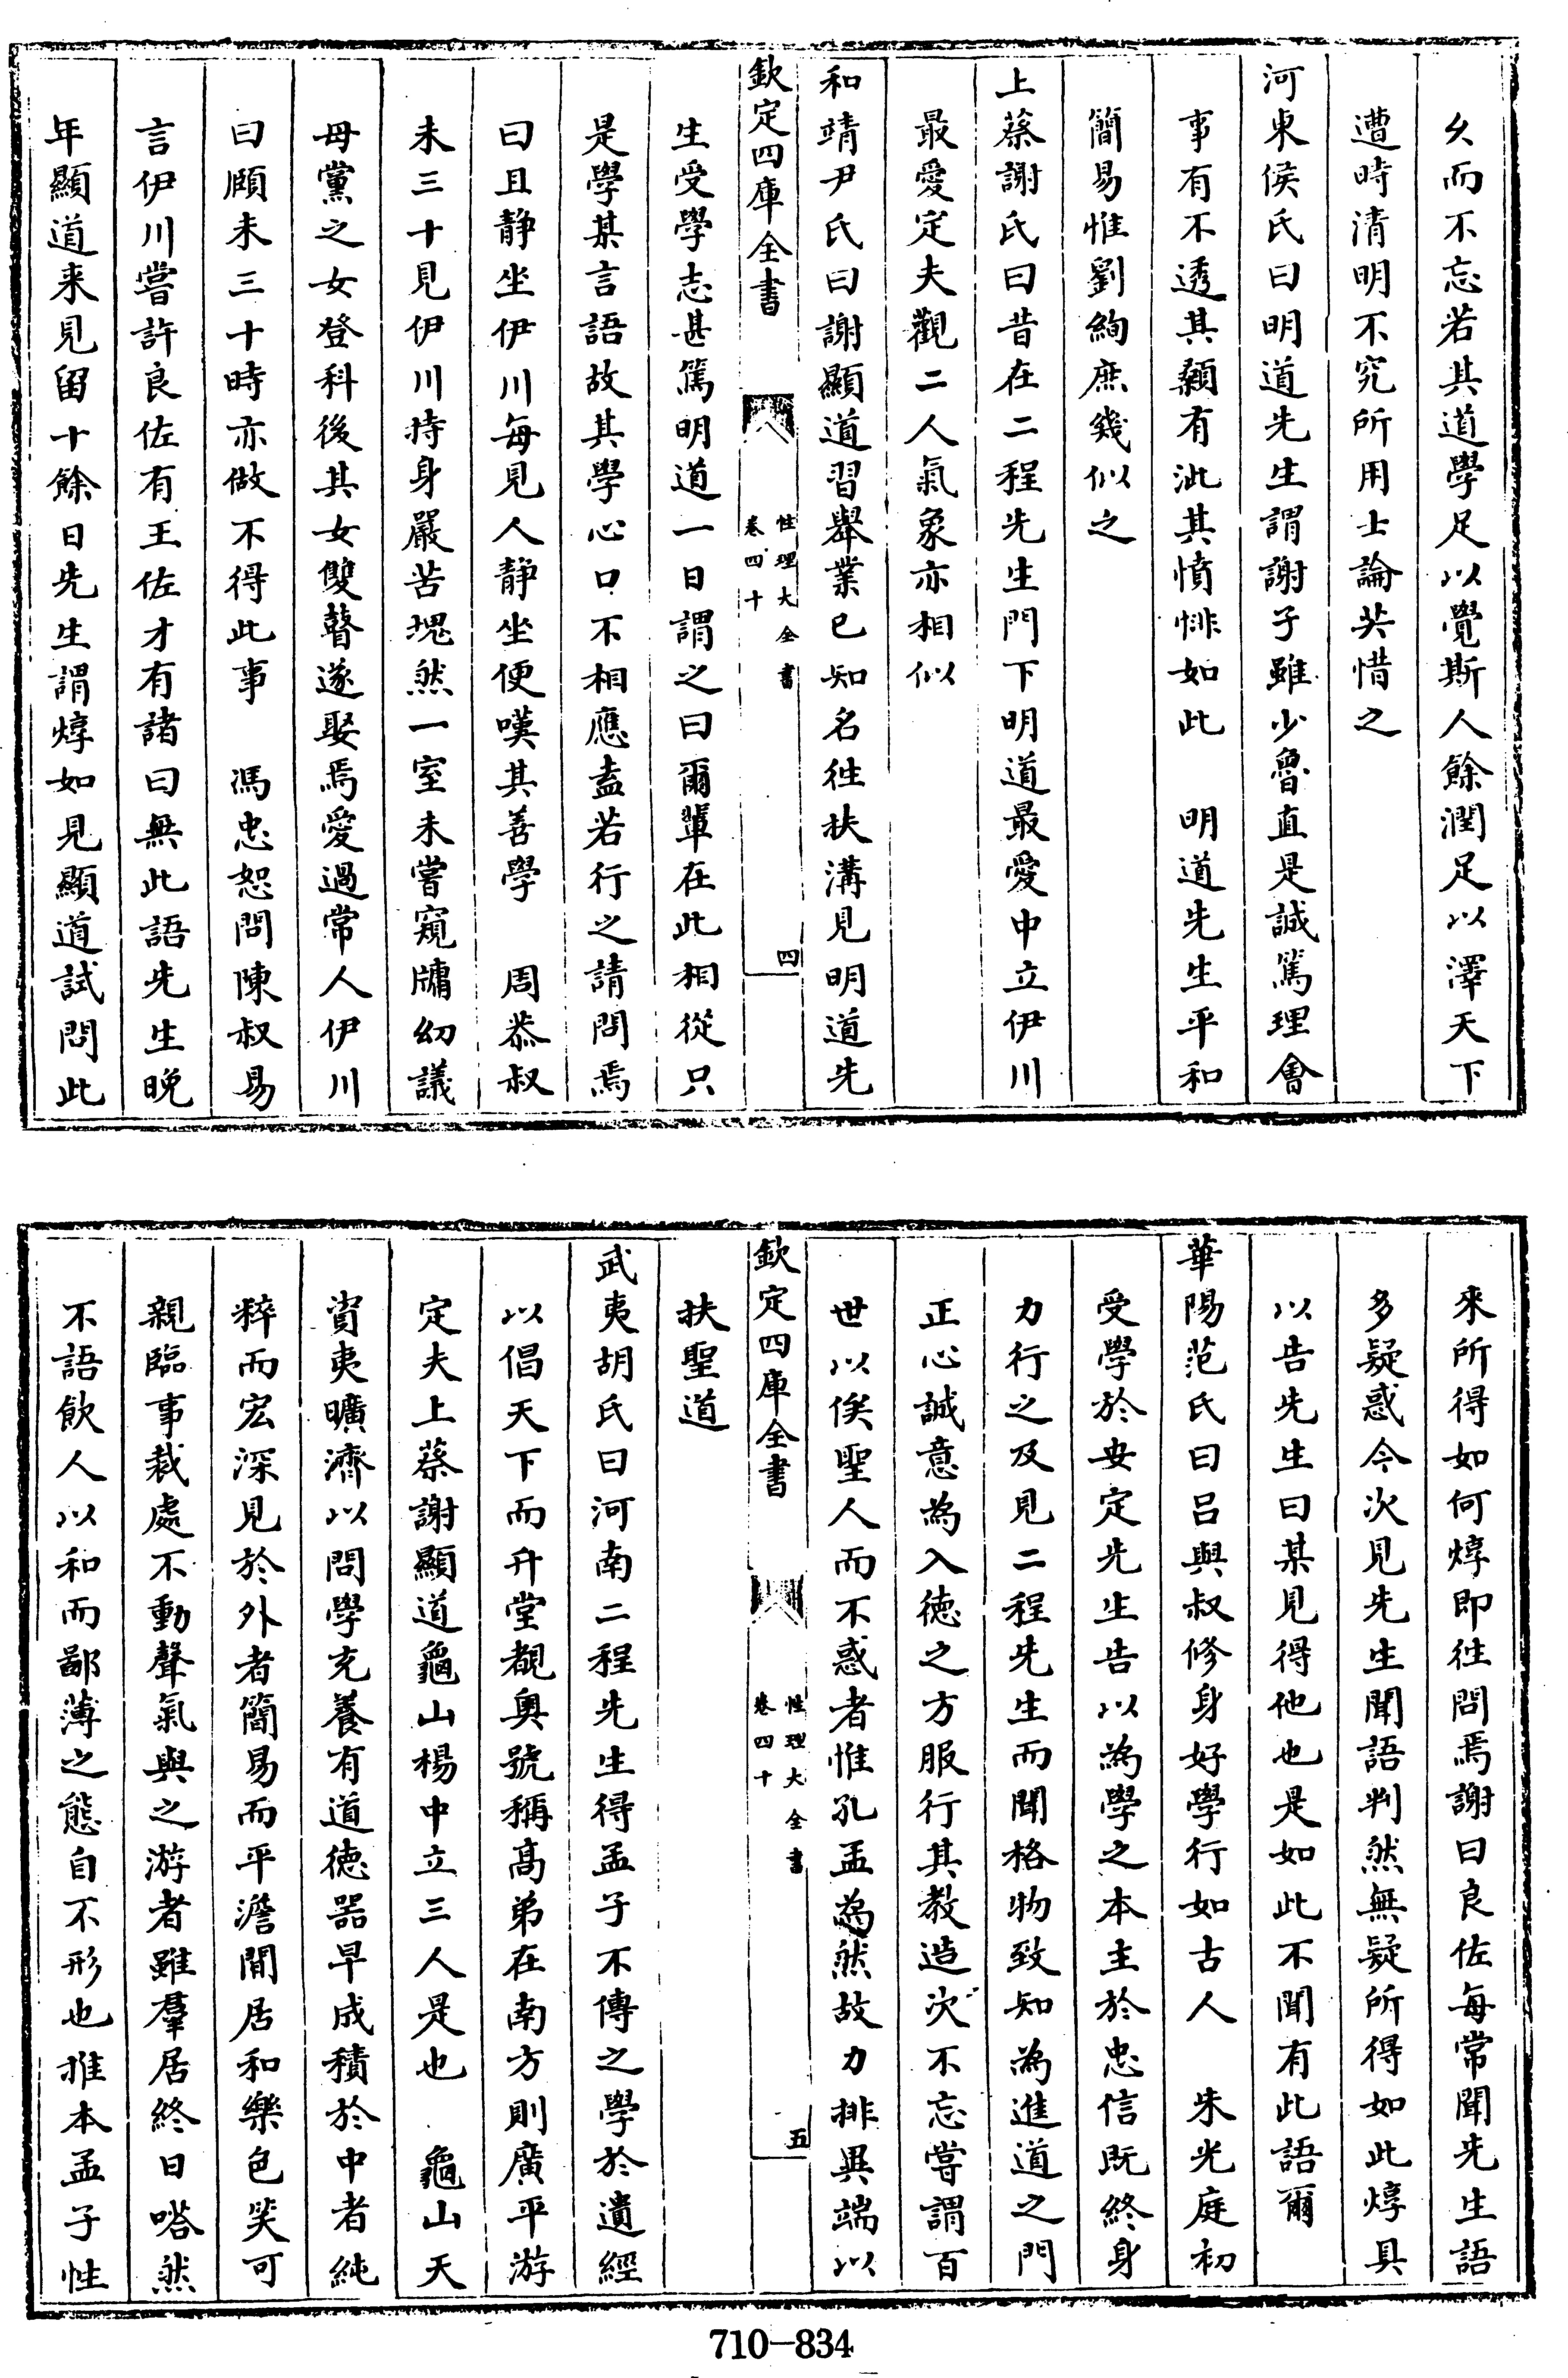 久而不忘若其道學足以覺斯人餘潤足以澤天下
遭時清明不究所用士論共惜之
河東侯氏曰明道先生謂謝子雖少魯直是誠篤理會
事有不透其顙有泚其憤悱如此　明道先生平和
簡易惟劉絢庶幾似之
上蔡謝氏曰昔在二程先生門下明道最愛中立伊川
最愛定夫觀二人氣象亦相似
和靖尹氏曰謝顯道習舉業已知名往扶溝見明道先
欽定四庫全書
性理大全書
卷四十
四
生受學志甚篤明道一日謂之曰爾輩在此相從只
是學某言語故其學心口不相應盍若行之請問焉
曰且靜坐伊川每見人靜坐便嘆其善學　周恭叔
未三十見伊川持身嚴苦塊然一室未嘗窺牖幼議
母黨之女登科後其女雙瞽遂娶焉愛過常人伊川
曰頤未三十時亦做不得此事　馮忠恕問陳叔易
言伊川嘗許良佐有王佐才有諸曰無此語先生晚
年顯道来見留十餘日先生謂焞如見顯道試問此
来所得如何焞即往問焉謝曰良佐每常聞先生語
多疑惑今次見先生聞語判然無疑所得如此焞具
以告先生曰某見得他也是如此不聞有此語爾
華陽范氏曰呂與叔修身好學行如古人　朱光庭初
受學於安定先生告以為學之本主於忠信既終身
力行之及見二程先生而聞格物致知為進道之門
正心誠意為入徳之方服行其教造次不忘嘗謂百
世以俟聖人而不惑者惟孔孟為然故力排異端以
欽定四庫全書
性理大全書
卷四十
五
扶聖道
武夷胡氏曰河南二程先生得孟子不傳之學於遺經
以倡天下而升堂覩奧號稱高弟在南方則廣平游
定夫上蔡謝顯道龜山楊中立三人是也　龜山天
資夷曠濟以問學充養有道徳器早成積於中者純
粹而宏深見於外者簡易而平澹閒居和樂色笑可
親臨事裁處不動聲氣與之游者雖羣居終日嗒然
不語飲人以和而鄙薄之態自不形也推本孟子性
710-834